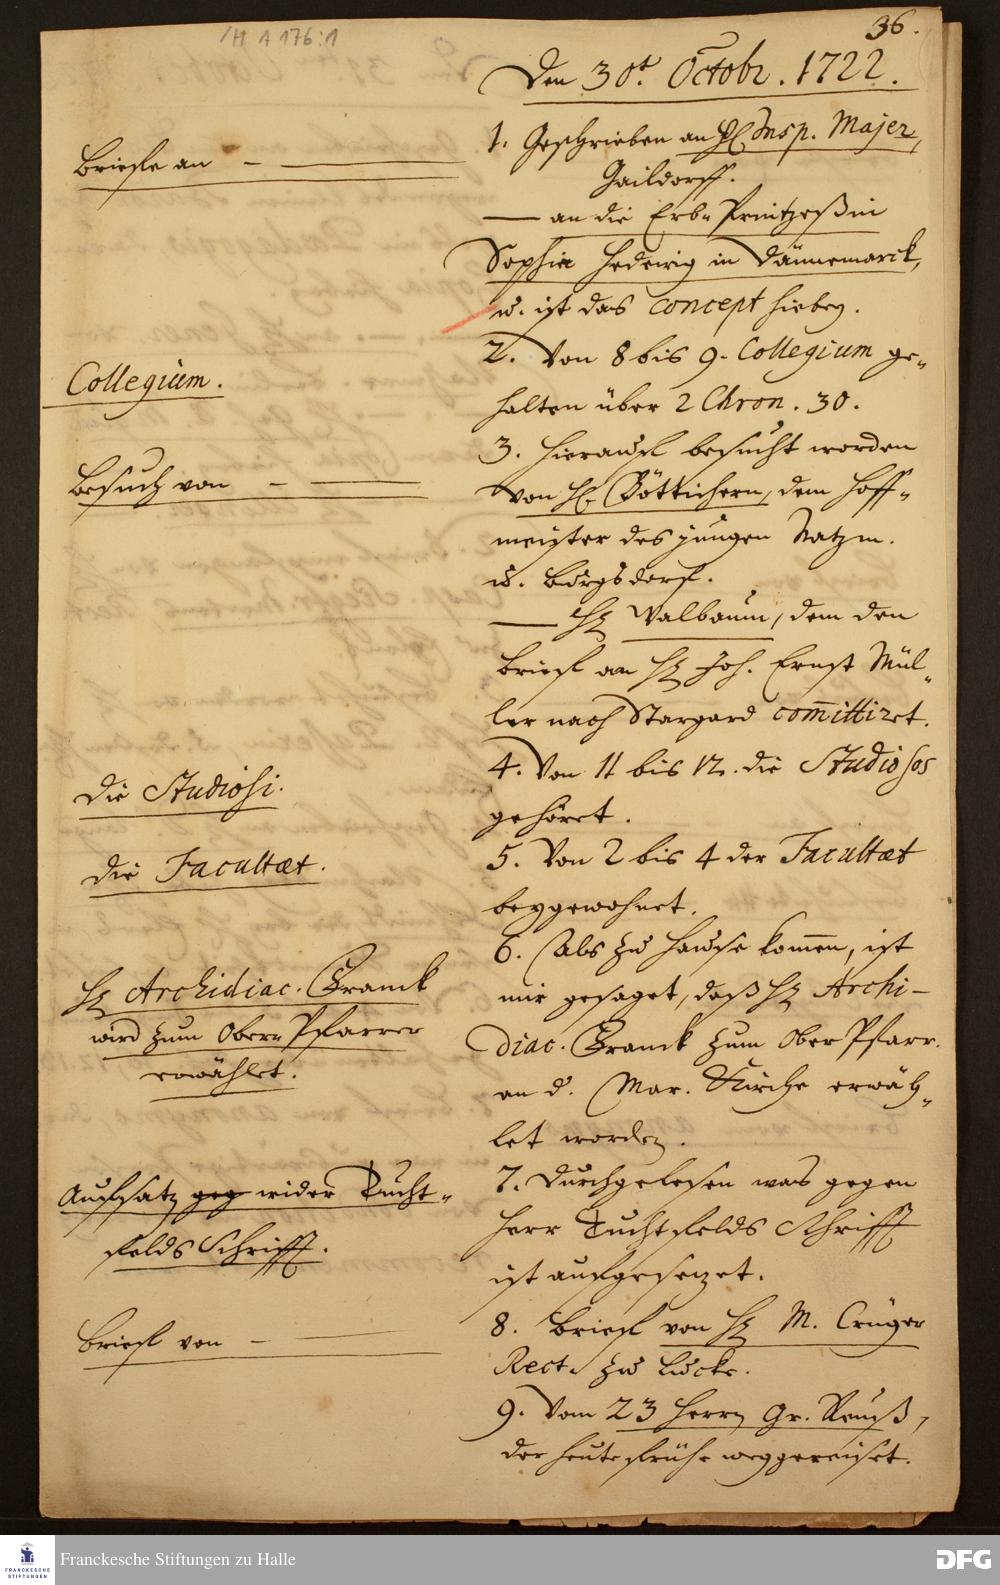 /H A 176:1
36.
Den 30t. Octobr. 1722.
Briefe an –
1. Geschrieben an H. Insp. Majer,
Gaildorff.
— an die Erb- Printzeßin
Sophia Hedewig in Dännemarck,
u. ist das concept hiebey.
Collegium.
2. Von 8 bis 9. Collegium ge-
halten über 2 Chron. 30.
Besuch von –
3. Hierauf besucht worden
von H. Böttichern, dem Hoff-
meister des jungen Natzm.
u. Burgsdorf.
— H. Walbaum, dem den
Brief an H. Joh. Ernst Mül-
ler nach Stargard committiret.
Die Studiosi.
4. Von 11 bis 12. die Studiosos
gehöret.
Die Facultaet.
5. Von 2 bis 4 der Facultaet
beygewohnet.
H. Archidiac. Franck
wird zum Ober- Pfarrer
erwählet.
6. Als zu Hause kommen, ist
mir gesaget, daß H. Archi-
diac. Franck zum Ober Pfarr.
an d. Mar. Kirche erwäh-
let worden.
Auffsatz geg wider Tucht-
felds Schrifft.
7. Durchgelesen was gegen
Herr Tuchtfelds Schrifft
ist aufgesetzet.
Brief von –
8. Brief von H. M. Crüger
Rect. zu Lucke.
9. Vom 23 Herrn Gr. Reuß,
der heute frühe weggereiset.
FRANCKESCHE
STIFTUNGEN
Franckesche Stiftungen zu Halle
DFG